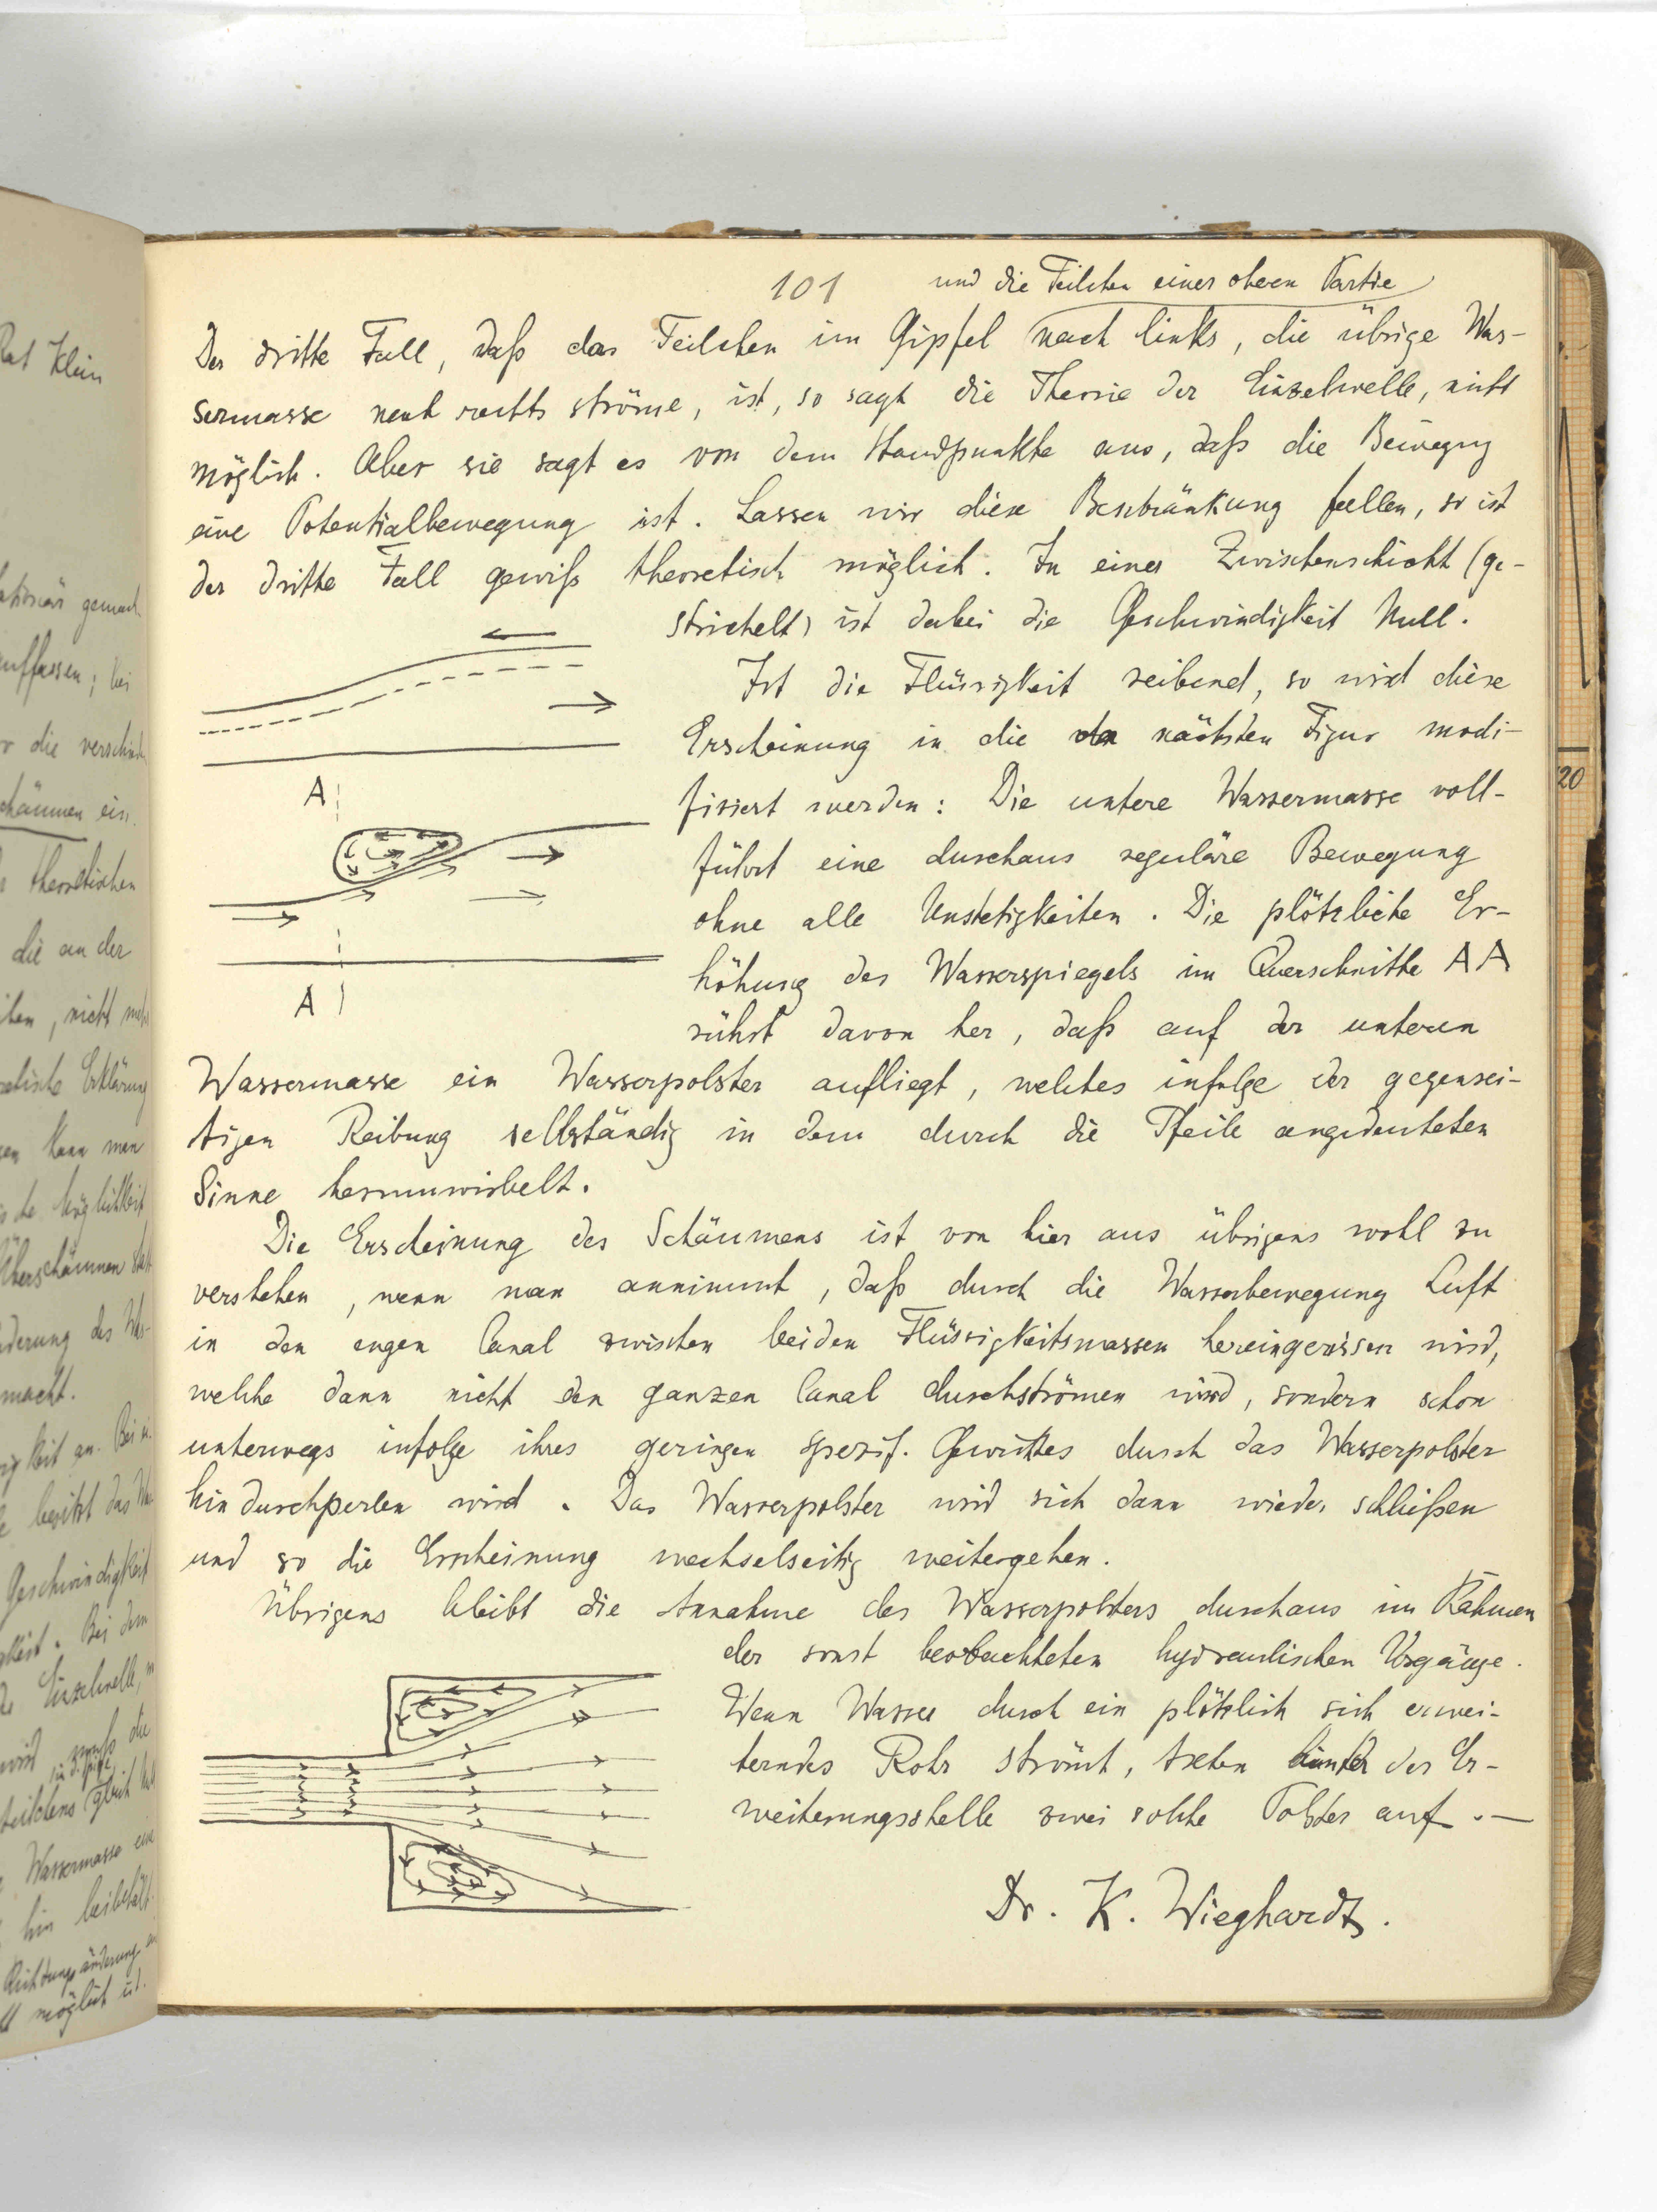 101
und die Teilchen einer oberen Partie
Der dritte Fall, daß das Teilchen im Gipfel nach links, die übrige Was-
sermasse nach rechts ströme, ist, so sagt die Theorie der Einzelwelle, nicht
möglich. Aber sie sagt es von dem Standpunkte aus, daß die Bewegung
eine Potentialbewegung ist. Lassen wir diese Beschränkung fallen, so ist
der dritte Fall gewiß theoretisch möglich. In einer Zwischenschicht (ge-
strichelt) ist dabei die Geschwindigkeit Null.
Ist die Flüssigkeit reibend, so wird diese
Erscheinung in die der nächsten Figur modi-
fiziert werden: Die untere Wassermasse voll-
A
führt eine durchaus reguläre Bewegung
ohne alle Unstetigkeiten. Die plötzliche Er-
höhung des Wasserspiegels im Querschnitte AA
A
rührt davon her, daß auf der unteren
Wassermasse ein Wasserpolster aufliegt, welches infolge der gegensei-
tigen Reibung selbständig in dem durch die Pfeile angedeuteten
Sinne herumwirbelt.
Die Erscheinung des Schäumens ist von hier aus übrigens wohl zu
verstehen, wenn man annimmt, daß durch die Wasserbewegung Luft
in den engen Canal zwischen beiden Flüssigkeitsmassen hereingerissen wird,
welche dann nicht den ganzen Canal durchströmen wird, sondern schon
unterwegs infolge ihres geringen spezif. Gewichtes durch das Wasserpolster
hindurchperlen wird. Das Wasserpolster wird sich dann wieder schließen
und so die Erscheinung wechselseitig weitergehen.
Übrigens bleibt die Annahme des Wasserpolsters durchaus im Rahmen
der sonst beobachteten hydraulischen Vorgänge.
Wenn Wasser durch ein plötzlich sich erwei-
terndes Rohr strömt, treten hinter der Er-
weiterungsstelle zwei solche Polster auf. —
Dr. K. Wieghardt.
20
Rat Klein
gemach
auffassen; bei
die verschied
schäumen ein.
theoretischen
die an der
nicht
Erklärung
kann man
Möglichkeit
Überschäumen
des Was-
macht.
an. Bei
besitzt das
Geschwindigkeit
Bei dem
Einzelwelle,
wird muß die
Teilchens gleich
Wassermasse eine
hin beibehält.
Richtungsänderung
möglich ist.